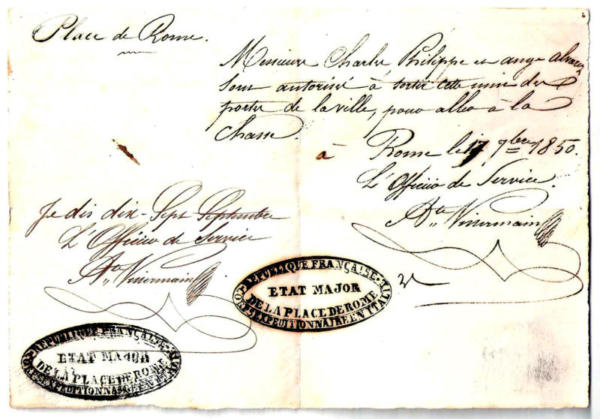 Place de Rome.
Messieurs Charles Philippe et ange alvarez
Sont autorisés à sortir cette nuit des
portes de la ville, pour aller à la
Chasse.
à Rome le 17 7bre 1850.
L'Officier de Service
Je dis dix-Sept Septembre
L'Officier de Service
REPUBLIQUE FRANÇAISE
ETAT MAJOR
DE LA PLACE DE ROME
EXPEDITIONNAIRE EN ITALIE
REPUBLIQUE FRANÇAISE
ETAT MAJOR
DE LA PLACE DE ROME
EXPEDITIONNAIRE EN ITALIE